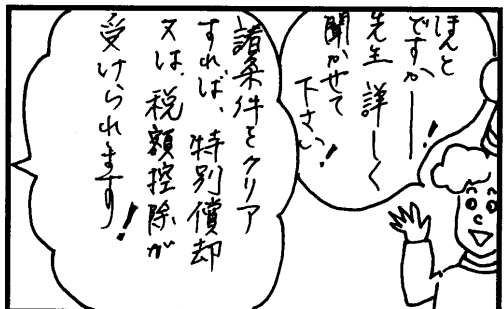 ほんと
ですかー!
先生詳しく
聞かせて
下さい!
諸条件をクリア
すれば、特別償却
又は、税額控除が
受けられます!